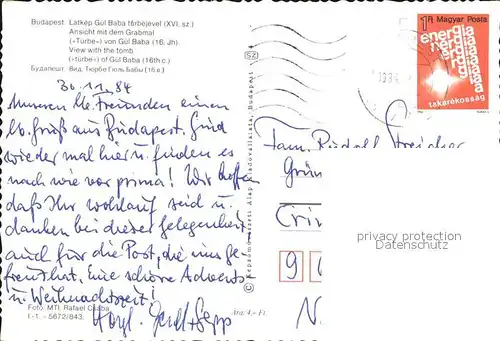 Budapest. Latkép Gül Baba türbéjével (XVI. sz.)
Ansicht mit dem Grabmal
(»Türbe«) von Gül Baba (16. Jh).
View with the tomb
(»türbe«) of Gül Baba (16th c.)
Будапешт. Вид. Тюрбе Гюль Бабы (16 в.)
30. 11. 84
Unseren lb. Freunden einen
lb. Gruß aus Budapest. Sind
wieder mal hier u. finden es
nach wie vor prima! Wir hoffen
daß Ihr wohlauf seid u.
danken bei dieser Gelegenheit
auch für die Post, die uns ge-
freut hat. Eine schöne Advents-
u. Weihnachtszeit!
Foto: MTI. Rafael Csaba
I-1. - 5672/843.
Ára: 4,- Ft.
SZ
© Képzőművészeti Alap Kiadóvállalata, Budapest
1 Ft Magyar Posta
energia
energia
energia
takarékosság
Fam. Rudolf Streicher
Grün
Crim
9 6
privacy protection
Datenschutz